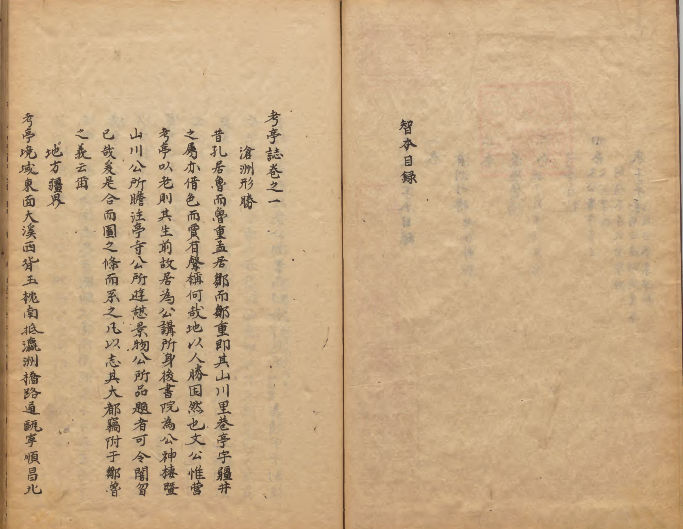 智本目録
考亭誌卷之一
滄洲形勝
昔孔居魯而魯重孟居鄒而鄒重即其山川里巷亭宇疆井
之屬亦借色而賁有聲稱何哉地以人勝固然也文公惟營
考亭以老則其生前故居為公講所身後書院為公神棲暨
山川公所瞻注亭寺公所遊憩景物公所品題者可令闇曶
已哉爰是合而圖之條而系之凡以志其大都竊附于鄒魯
之義云爾
地方疆界
考亭境域東面大溪西背玉枕南抵瀛洲橋路通甌寧順昌北